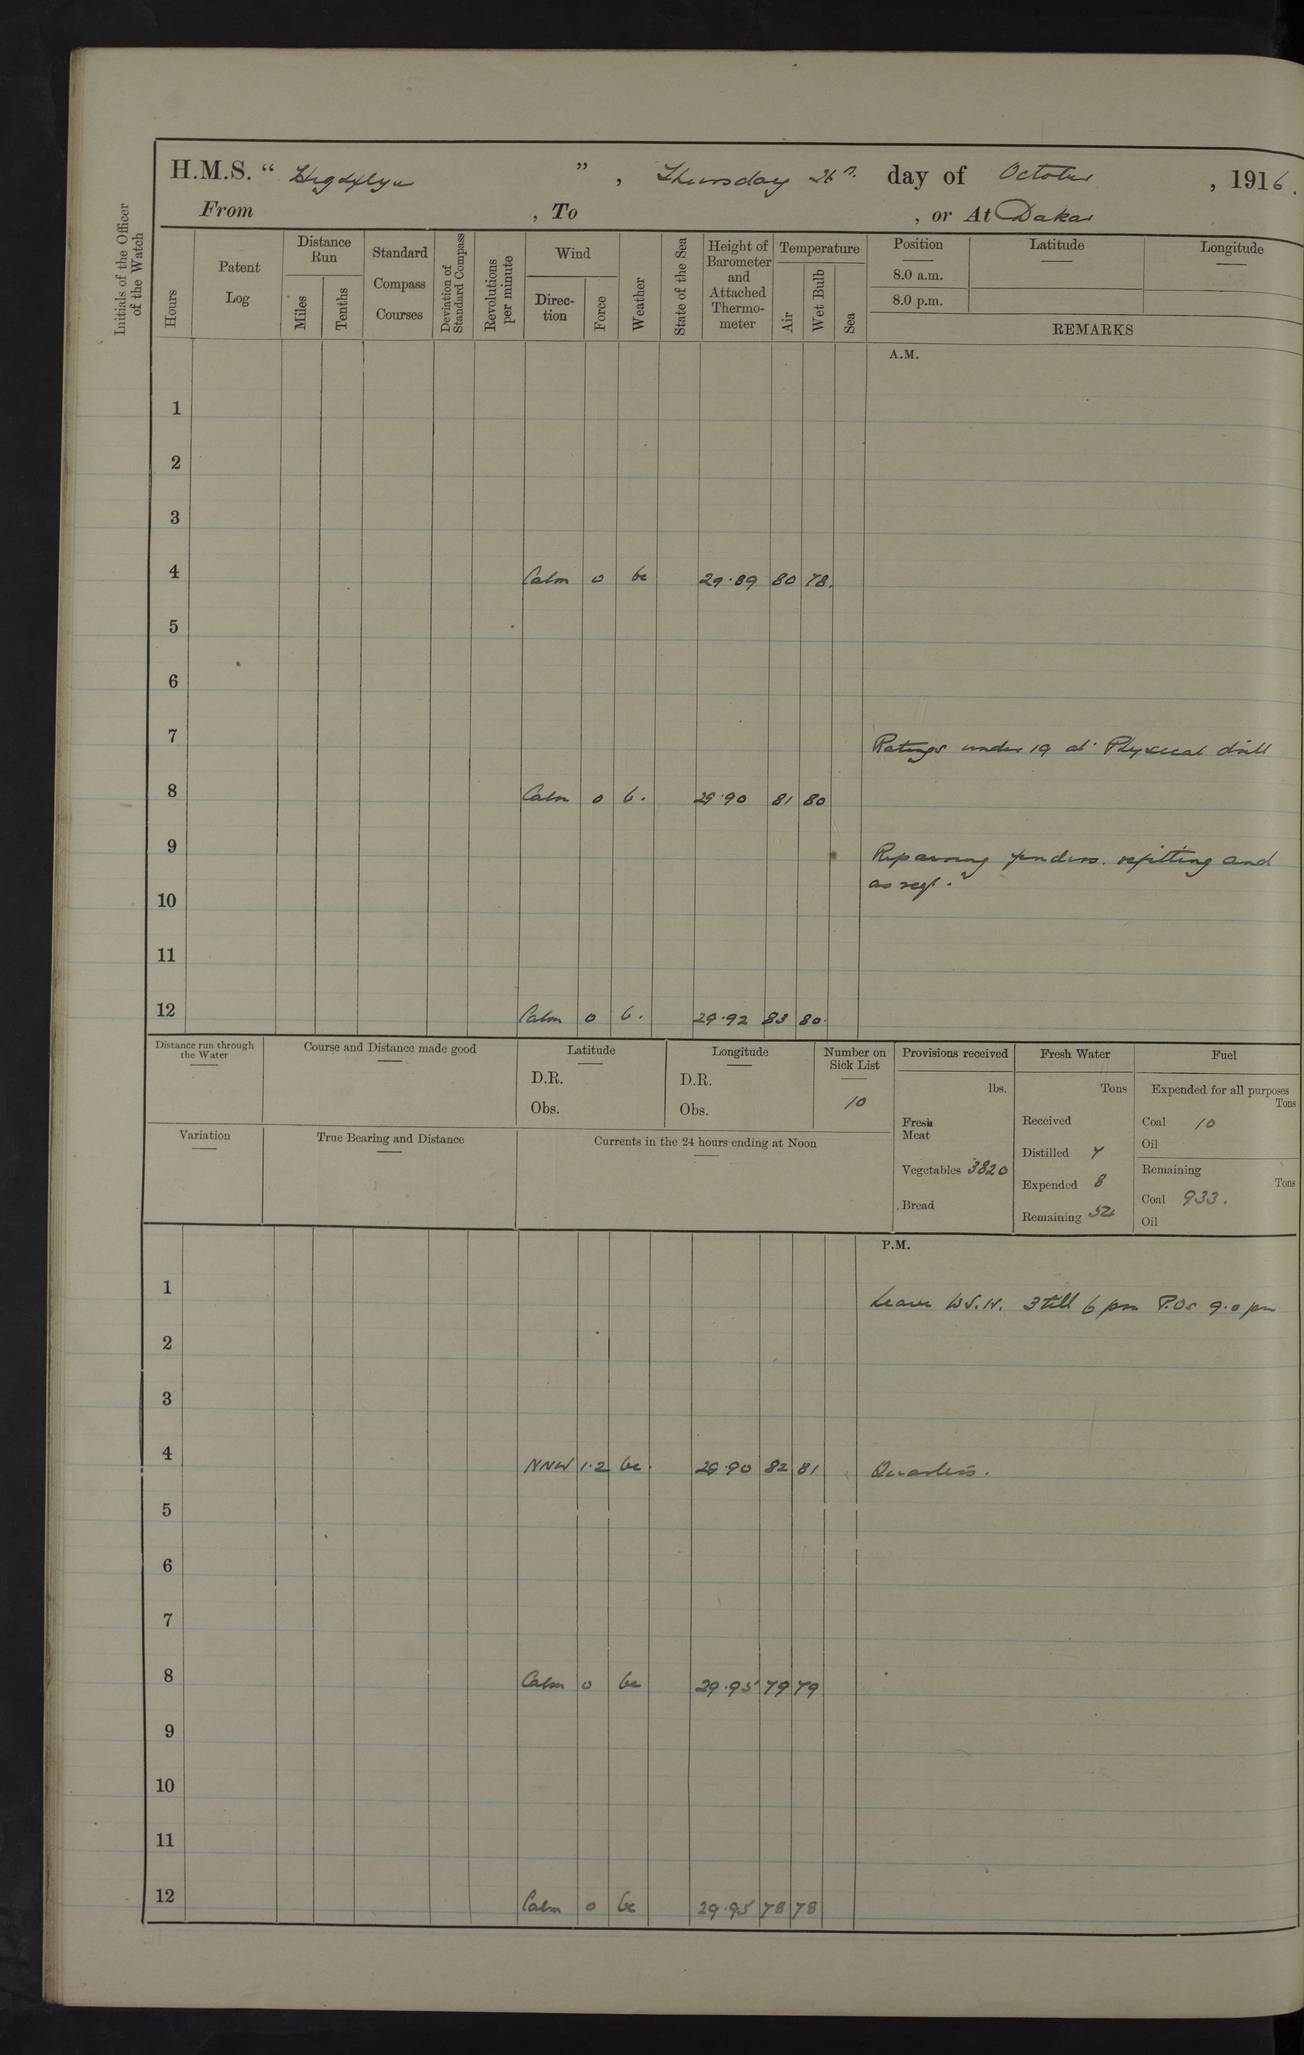 H.M.S. “ Highflyer ” , Thursday 26th day of October , 1916.
From , To , or At Dakar
Initials of the Officer of the Watch
Hours
Patent Log
Distance Run
Miles
Tenths
Standard Compass Courses
Deviation of Standard Compass
Revolutions per minute
Wind
Direc-tion
Force
Weather
State of the Sea
Height of Barometer and Attached Thermo-meter
Temperature
Air
Wet Bulb
Sea
Position Latitude Longitude
8.0 a.m.
8.0 p.m.
REMARKS
A.M.
1
2
3
4 Calm 0 bc 29.89 80 78.
5
6
7 Ratings under 19 at Physical drill
8 Calm 0 b. 29.90 81 80
9 Repairing fenders. refitting and
as reqd.
10
11
12 Calm 0 b. 29.92 83 80.
Distance run through the Water
Course and Distance made good
Latitude
D.R.
Obs.
Longitude
D.R.
Obs.
Number on Sick List
10
Provisions received
lbs.
Fresh Meat
Vegetables 3820
Bread
Fresh Water
Tons
Received
Distilled 7
Expended 8
Remaining 52
Fuel
Expended for all purposes
Tons
Coal 10
Oil
Remaining
Tons
Coal 933.
Oil
Variation
True Bearing and Distance
Currents in the 24 hours ending at Noon
P.M.
1 Leave 3 till 6 pm P.Os 9.0 pm
2
3
4 NNW 1.2 bc. 29.90 82 81 Quarters.
5
6
7
8 Calm 0 bc 29.95 79 79
9
10
11
12 Calm 0 bc 29.95 78 78